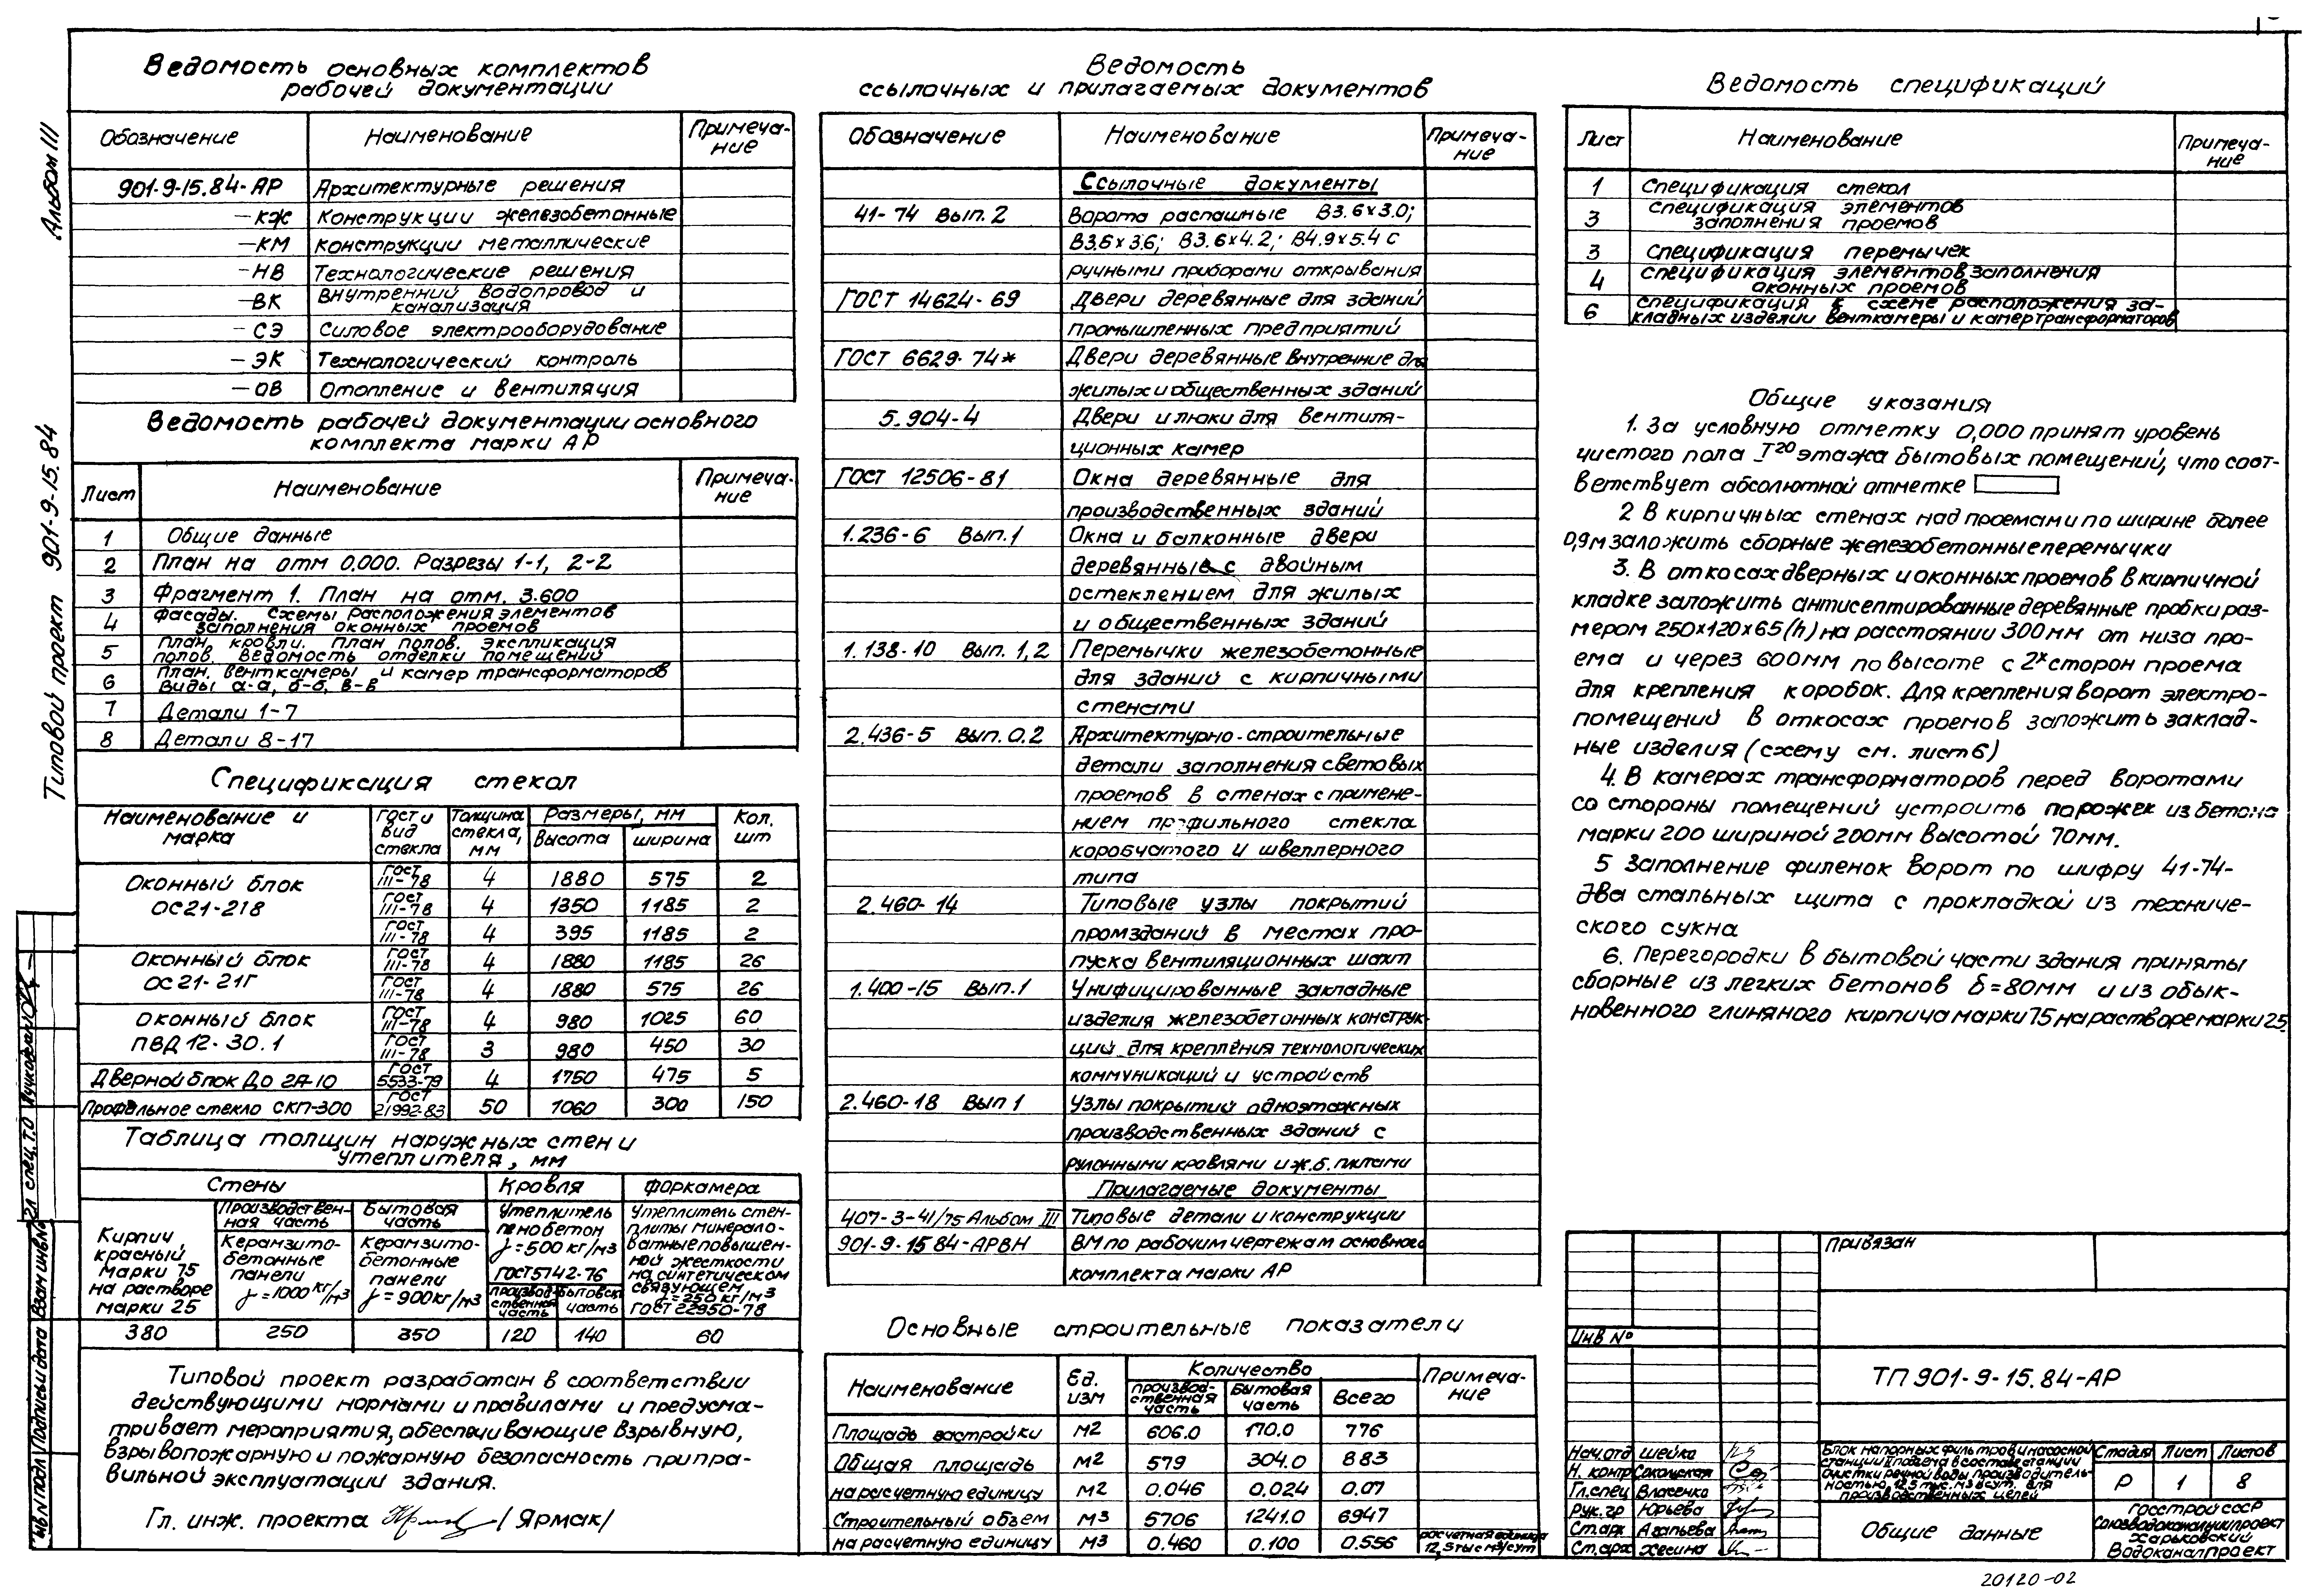 Альбом III
Типовой проект 901-9-15.84
Ведомость основных комплектов
рабочей документации
Обозначение Наименование Примеча-
ние
901-9-15.84-АР Архитектурные решения
-КЖ Конструкции железобетонные
-КМ Конструкции металлические
-НВ Технологические решения
-ВК Внутренний водопровод и
канализация
-СЭ Силовое электрооборудование
-ЭК Технологический контроль
-ОВ Отопление и вентиляция
Ведомость рабочей документации основного
комплекта марки АР
Лист Наименование Примеча-
ние
1 Общие данные
2 План на отм 0.000. Разрезы 1-1, 2-2
3 Фрагмент 1. План на отм. 3.600
4 Фасады. Схемы расположения элементов
заполнения оконных проемов
5 План кровли. План полов. Экспликация
полов. Ведомость отделки помещений
6 План. венткамеры и камер трансформаторов
Виды а-а, б-б, в-в
7 Детали 1-7
8 Детали 8-17
Спецификация стекол
Наименование и
марка
ГОСТ и
вид
стекла
Толщина
стекла,
мм
Размеры, мм
Высота ширина
Кол.
шт
Оконный блок
ОС21-21В
ГОСТ
111-78 4 1880 575 2
ГОСТ
111-78 4 1350 1185 2
ГОСТ
111-78 4 395 1185 2
Оконный блок
ОС21-21Г
ГОСТ
111-78 4 1880 1185 26
ГОСТ
111-78 4 1880 575 26
Оконный блок
ПВД 12-30.1
ГОСТ
111-78 4 980 1025 60
ГОСТ
111-78 3 980 450 30
Дверной блок До 21-10 ГОСТ
5533-79 4 1750 475 5
Профильное стекло СКП-300 ГОСТ
21992-83 50 1060 300 150
Таблица толщин наружных стен и
утеплителя, мм
Стены Кровля Форкамера
Кирпич
красный
марки 75
на растворе
марки 25
Производствен-
ная часть
Керамзито-
бетонные
панели
γ=1000 кг/м3
Бытовая
часть
Керамзито-
бетонные
панели
γ=900 кг/м3
Утеплитель
пенобетон
γ=500 кг/м3
ГОСТ 5742-76
производ-
ственная
часть
бытовая
часть
Утеплитель стен-
плиты минерало-
ватные повышен-
ной жесткости
на синтетическом
связующем
γ=250 кг/м3
ГОСТ 22950-78
380 250 350 120 140 60
Типовой проект разработан в соответствии
действующими нормами и правилами и предусма-
тривает мероприятия, обеспечивающие взрывную,
взрывопожарную и пожарную безопасность при пра-
вильной эксплуатации здания.
Гл. инж. проекта /Ярмак/
Ведомость
ссылочных и прилагаемых документов
Обозначение Наименование Примеча-
ние
Ссылочные документы
41-74 Вып. 2 Ворота распашные В3.6×3.0;
В3.6×3.6; В3.6×4.2; В4.9×5.4 с
ручными приборами открывания
ГОСТ 14624-69 Двери деревянные для зданий
промышленных предприятий
ГОСТ 6629-74* Двери деревянные внутренние для
жилых и общественных зданий
5.904-4 Двери и люки для вентиля-
ционных камер
ГОСТ 12506-81 Окна деревянные для
производственных зданий
1.236-6 Вып.1 Окна и балконные двери
деревянные с двойным
остеклением для жилых
и общественных зданий
1.138-10 Вып. 1,2 Перемычки железобетонные
для зданий с кирпичными
стенами
2.436-5 Вып. 0.2 Архитектурно-строительные
детали заполнения световых
проемов в стенах с примене-
нием профильного стекла
коробчатого и швеллерного
типа
2.460-14 Типовые узлы покрытий
промзданий в местах про-
пуска вентиляционных шахт
1.400-15 Вып.1 Унифицированные закладные
изделия железобетонных конструк-
ций для крепления технологических
коммуникаций и устройств
2.460-18 Вып 1 Узлы покрытий одноэтажных
производственных зданий с
рулонными кровлями и ж.б. плитами
Прилагаемые документы
407-3-41/75 Альбом III Типовые детали и конструкции
901-9-15 84-АРВН ВМ по рабочим чертежам основного
комплекта марки АР
Основные строительные показатели
Наименование Ед.
изм
Количество
производ-
ственная
часть
Бытовая
часть
Всего
Примеча-
ние
Площадь застройки м2 606.0 170.0 776
Общая площадь м2 579 304.0 883
на расчетную единицу м2 0.046 0.024 0.07
Строительный объем м3 5706 1241.0 6947
на расчетную единицу м3 0.460 0.100 0.556 расчетная единица
12,5 тыс м3/сут
Ведомость спецификаций
Лист Наименование Примеча-
ние
1 Спецификация стекол
3 Спецификация элементов
заполнения проемов
3 Спецификация перемычек
4 Спецификация элементов заполнения
оконных проемов
6 Спецификация к схеме расположения за-
кладных изделий венткамеры и камер трансформаторов
Общие указания
1. За условную отметку 0,000 принят уровень
чистого пола I го этажа бытовых помещений, что соот-
ветствует абсолютной отметке
2 В кирпичных стенах над проемами по ширине более
0,9м заложить сборные железобетонные перемычки
3. В откосах дверных и оконных проемов в кирпичной
кладке заложить антисептированные деревянные пробки раз-
мером 250×120×65(h) на расстоянии 300мм от низа про-
ема и через 600мм по высоте с 2х сторон проема
для крепления коробок. Для крепления ворот электро-
помещений в откосах проемов заложить заклад-
ные изделия (схему см. лист 6)
4. В камерах трансформаторов перед воротами
со стороны помещений устроить порожек из бетона
марки 200 шириной 200мм высотой 70мм.
5 Заполнение филенок ворот по шифру 41-74-
два стальных щита с прокладкой из техниче-
ского сукна
6. Перегородки в бытовой части здания приняты
сборные из легких бетонов δ=80мм и из обык-
новенного глиняного кирпича марки 75 на растворе марки 25.
Привязан
Инв №
ТП 901-9-15.84-АР
Нач.отд Шейко
Н. контр Сокольская
Гл.спец Власенко
Рук.гр Юрьева
Ст.арх Агапьева
Ст.арх Хесина
Блок напорных фильтров и насосной
станции II подъема в составе станции
очистки речной воды производитель-
ностью 12,5 тыс. м3/сут. для
производственных целей
Стадия Лист Листов
Р 1 8
Общие данные
Госстрой СССР
Союзводоканалниипроект
Харьковский
Водоканалпроект
20120-02
Гл спец. Т.О
Инв N подл Подпись и дата Взам инв N